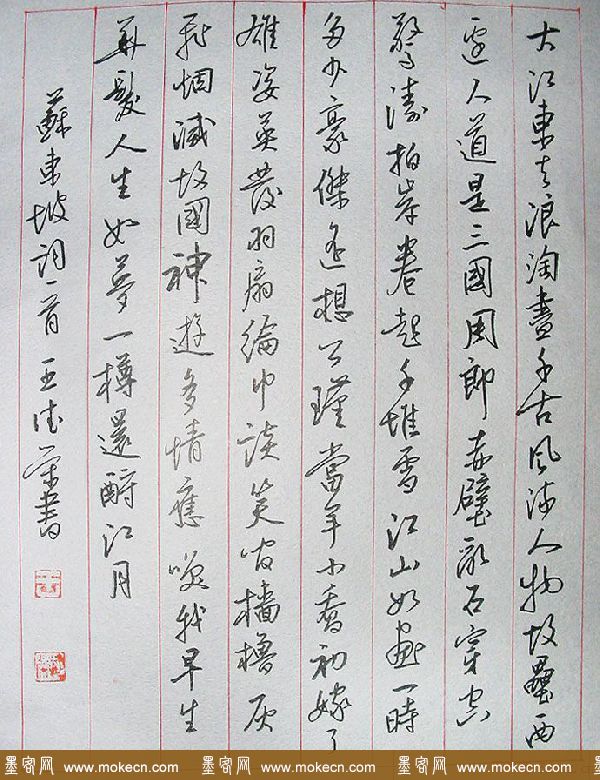 大江東去浪淘盡千古風流人物故壘西
邊人道是三國周郎赤壁亂石穿空
驚濤拍岸卷起千堆雪江山如畫一時
多少豪傑遙想公瑾當年小喬初嫁了
雄姿英發羽扇綸巾談笑間檣櫓灰
飛烟滅故國神遊多情應笑我早生
華髮人生如夢一樽還酹江月
蘇東坡詞一首 王 書
墨客网 www.mokecn.com 墨客网 www.mokecn.com 墨客网 www.mokecn.com